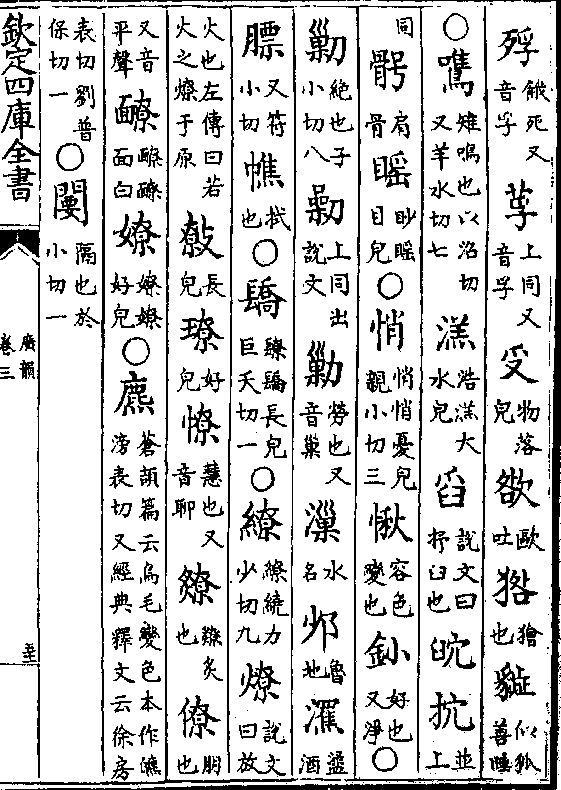 殍餓死又音孚莩上同又音孚𠬪物落皃歐吐獪也似狐善睡
○鷕雉鳴也以沼切又羊水切七溔浩溔大水皃舀說文曰抒臼也抭並上
同䯚肩骨䁘眇䁘目皃○悄悄悄憂皃親小切三愀容色變也釥好也又淨○
勦絶也子小切八劋上同出說文勦勞也又音巢漅水名魯地盪酒
膘又符小切㡈拭也○長皃巨夭切一○繚繚繞力少切九燎說文曰放
火也左傳曰若火之燎于原長皃璙好皃憭慧也又音聊爒爒炙也僚朋也
又音平聲面白嫽嫽嫽好皃○麃蒼頡篇云鳥毛變色本作滂表切又經典釋文云徐房
表切劉普保切一○闄隔也於小切一
欽定四庫全書
廣韻
卷三